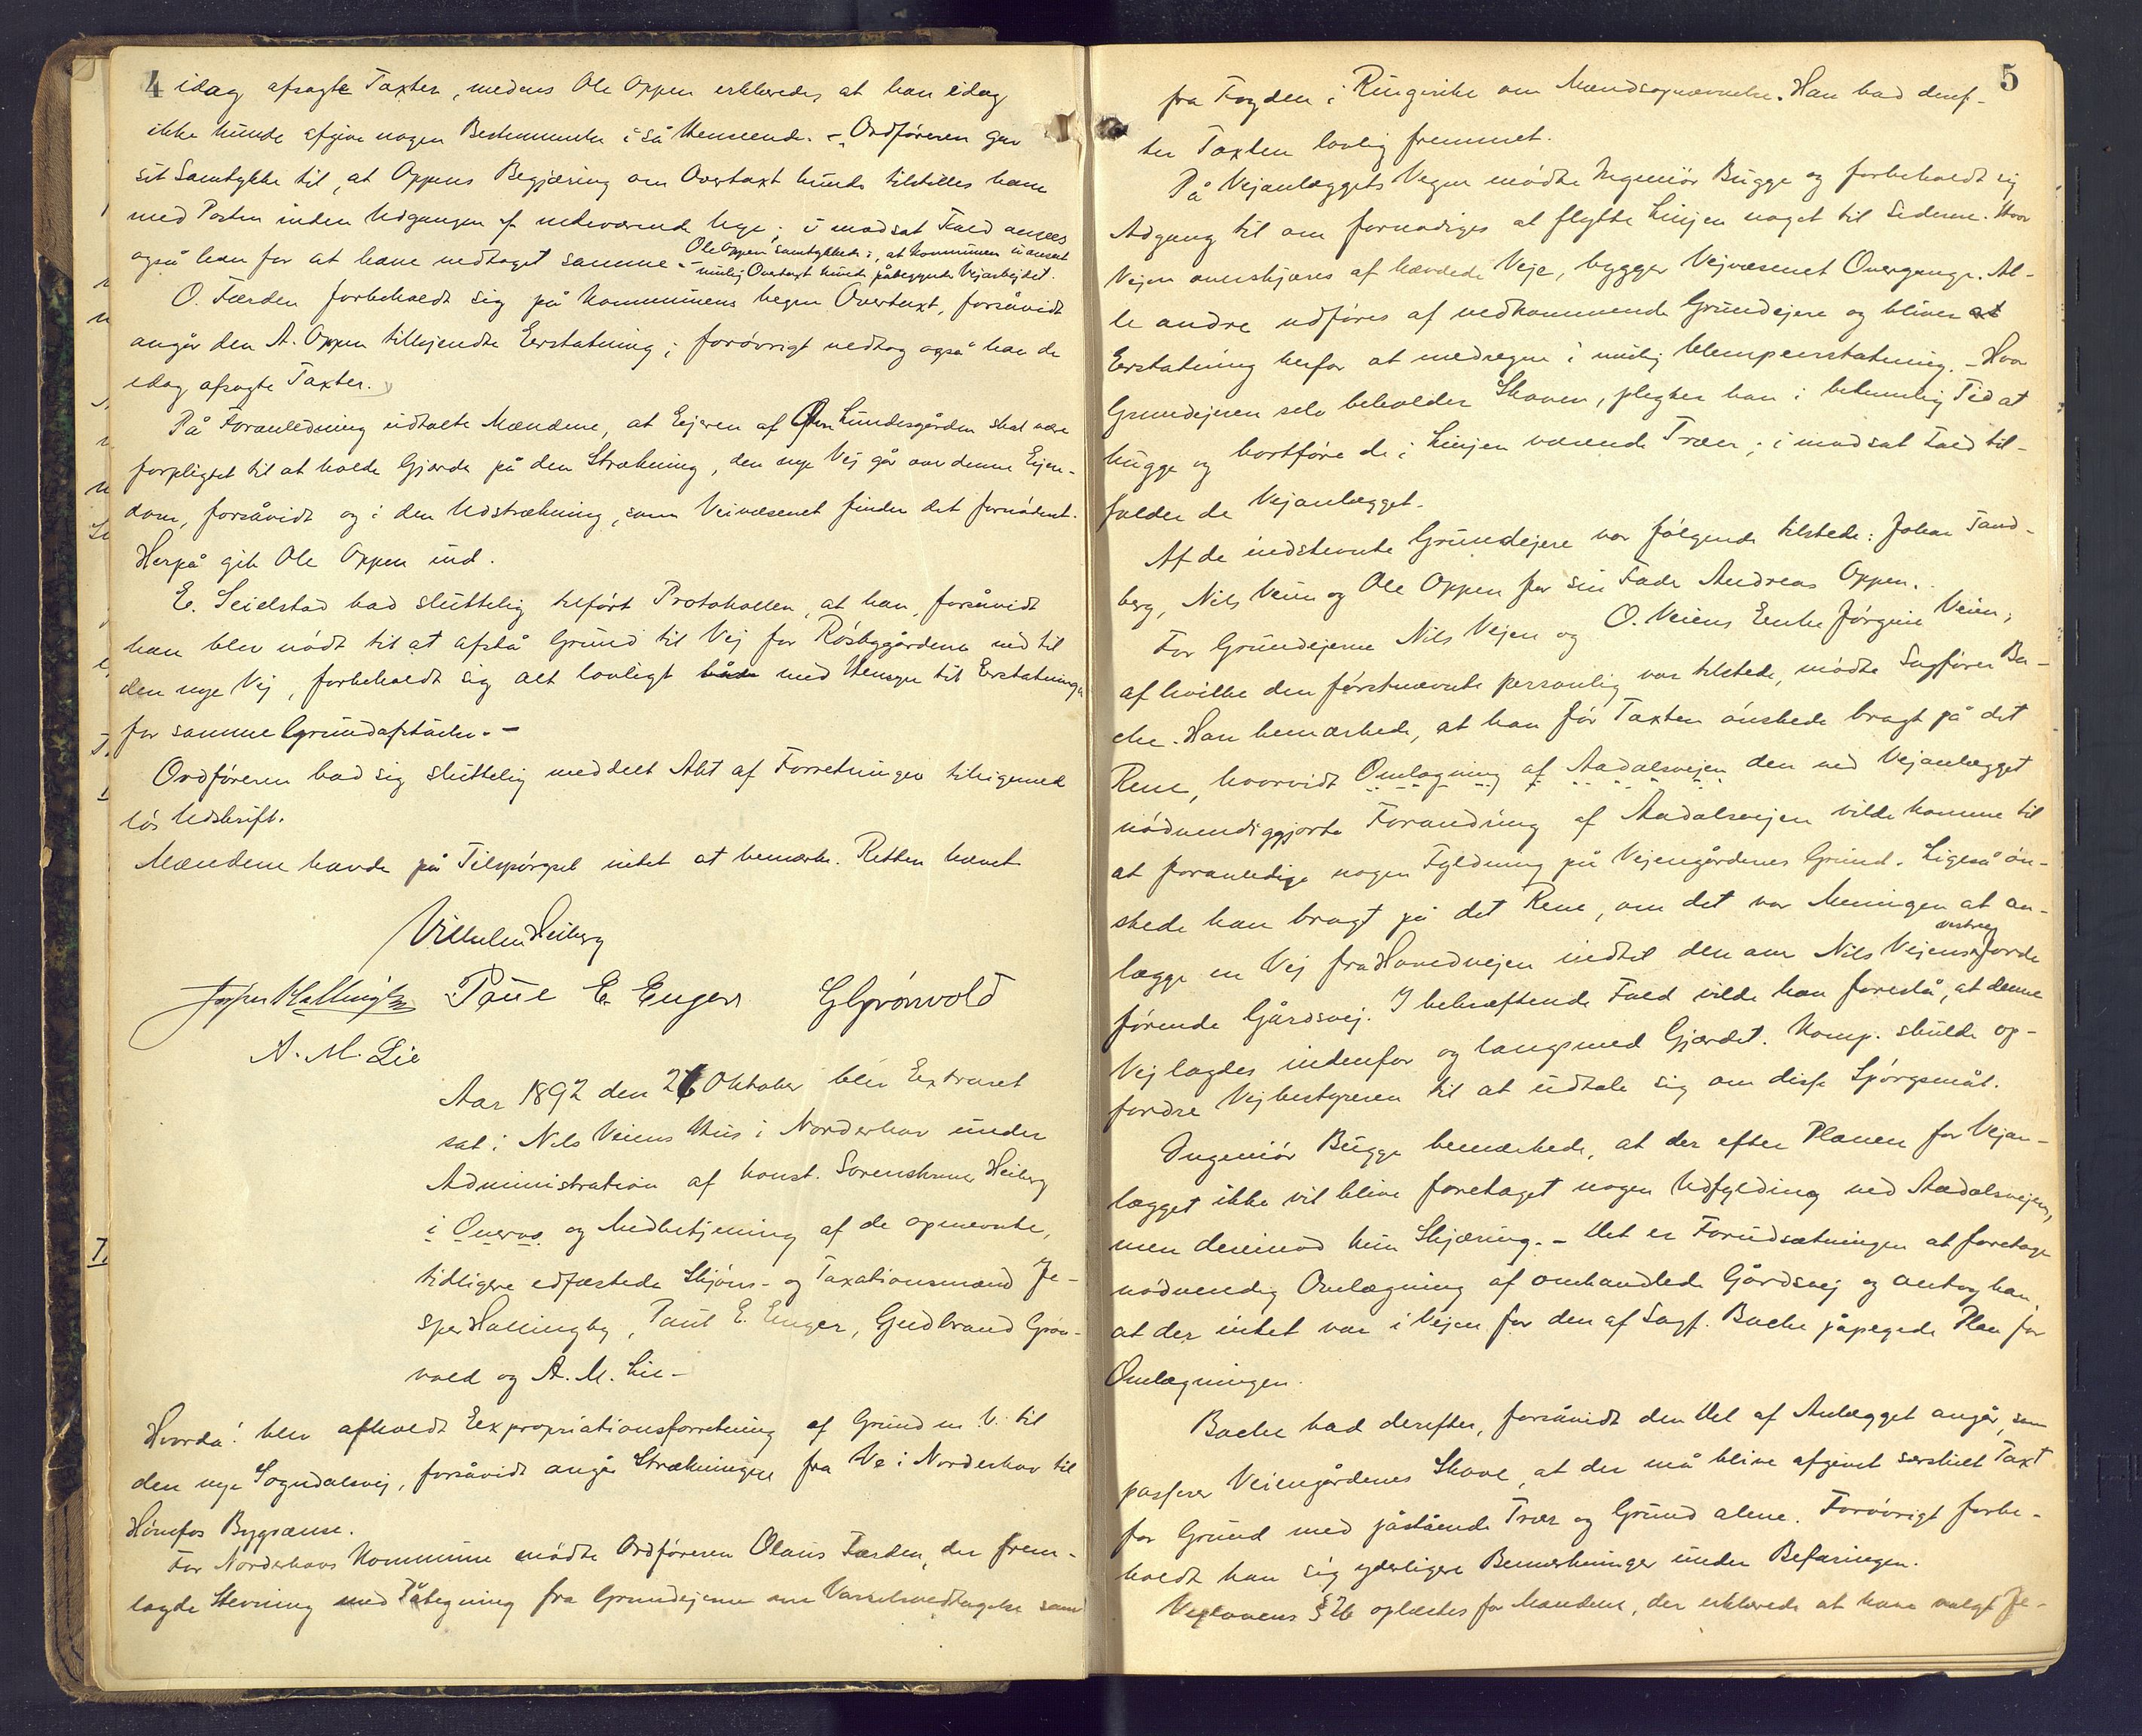 4 idag afsagte Taxter, medens Ole Oppen erklærede, at han idag
ikke kunde afgive nogen Bestemmelse i så Henseende. – Ordføreren gav
sit Samtykke til, at Oppens Begjæring om Overtaxt kunde tilstilles ham
med Posten inden Udgangen af indeværende Uge; i modsat Fald ansees
også han for at have vedtaget samme. – Ole Oppen samtykkede i, at Kommunen uanseet
mulig Overtaxt kunde påbegynde Vejarbejdet.
O. Færden forbeholdt sig på Kommunens vegne Overtaxt, forsåvidt
angår den A. Oppen tilkjendte Erstatning; forøvrigt vedtog også han de
idag afsagte Taxter.
På Foranledning udtalte Mændene, at Ejeren af Lundesgården skal være
forpligtet til at holde Gjærde på den Strækning, den nye Vej går over denne Ejen-
dom, forsåvidt og i den Udstrækning, som Veivæsenet finder det fornødent.
Herpå gik Ole Oppen ind.
E. Seielstad bad sluttelig tilført Protokollen, at han, forsåvidt
han blev nødt til at afstå Grund til Vej for Røsbygårdene ned til
den nye Vej, forbeholdt sig alt lovligt både med Hensyn til Erstatningen
for samme Grundafståelse. –
Ordføreren bad sig sluttelig meddelt Akt af Forretningen tilligemed
løs Udskrift.
Mændene havde på Tilspørgsel intet at bemærke. Retten hævet
Vilhelm Heiberg
Jesper Hallingby Paul E. Enger GGrønvold
A. M. Lie
Aar 1892 den 26 Oktober blev Extraret
sat i Nils Veiens Hus i Norderhov under
Administration af konst. Sorenskriver Heiberg
i Overvær og Medbetjening af de opnævnte,
tidligere edfæstede Skjøns- og Taxationsmænd Je-
sper Hallingby, Paul E. Enger, Gudbrand Grøn-
vold og A. M. Lie –
Hvorda: blev afholdt Expropriationsforretning af Grund m. V. til
den nye Sogndalsvej, forsåvidt angår Strækningen fra Ve i Norderhov til
Hønefos Bygrænse.
For Norderhovs Kommune mødte Ordføreren Olaus Færden, der frem-
lagde Stevning med Påtegning fra Grundejerne om Varselsvedtagelse samt
5
fra Fogden i Ringerike om Mændsopnævnelse. Han bad deref-
ter Taxten lovlig fremmet.
På Vejanlæggets Vegne mødte Ingeniør Bugge og forbeholdt sig
Adgang til om fornødiges at flytte Linjen noget til Siderne. Hvor
Vejen overskjæres af hævdede Veje, bygger Vejvæsenet Overgange. Al-
le andre udføres af vedkommende Grundejere og bliver
Erstatning herfor at medregne i mulig Ulempeerstatning. – Hvor
Grundejeren selv beholder Skoven, plegter han i betimelig Tid at
hugge og bortføre de i Linjen værende Træer; i modsat Fald til-
falder de Vejanlægget.
Af de indstevnte Grundejere var følgende tilstede: Johan Tand-
berg, Nils Veien og Ole Oppen for sin Fader Andreas Oppen.
For Grundejerne Nils Vejen og O. Veiens Enke Jørgine Veien,
af hvilke den førstnævnte personlig var tilstede, mødte Sagfører Ba-
che. Han bemærkede, at han før Taxten ønskede bragt på det
Rene, hvorvidt Omlægning af Aadalsvejen den ved Vejanlægget
nødvendiggjorte Forandring af Aadalsvejen vilde komme til
at foranledige nogen Fyldning på Vejengårdenes Grund. Ligeså øn-
skede han bragt på det Rene, om det var Meningen at an-
lægge en Vej fra Hovedvejen indtil den over Nils Vejens Jorde
førende Gårdsvej. I bekræftende Fald vilde han foreslå, at denne
Vej lagdes indenfor og langsmed Gjærdet. Komp. skulde op-
fordre Vejbestyreren til at udtale sig om disse Spørgsmål.
Ingeniør Bugge bemærkede, at der efter Planen for Vejan-
lægget ikke vil blive foretaget nogen Udfylding ved Aadalsvejen,
men derimod kun Skjæring. – Det er Forudsætningen at foretage
nødvendig Omlægning af omhandlede Gårdsvej og antog han,
at der intet var i Vejen for den af Sagf. Bache påpegede Plan for
Omlægningen.
Bache bad derefter, forsåvidt den Del af Anlægget angår, som
passerer Veiengårdenes Skove, at der må blive afgivet særskilt Taxt
for Grund med påstående Trær og Grund alene. Forøvrigt forbe-
holdt han sig yderligere Bemærkninger under Befaringen.
Vejlovens § 26 oplæstes for Mændene, der erklærede at have valgt Je-